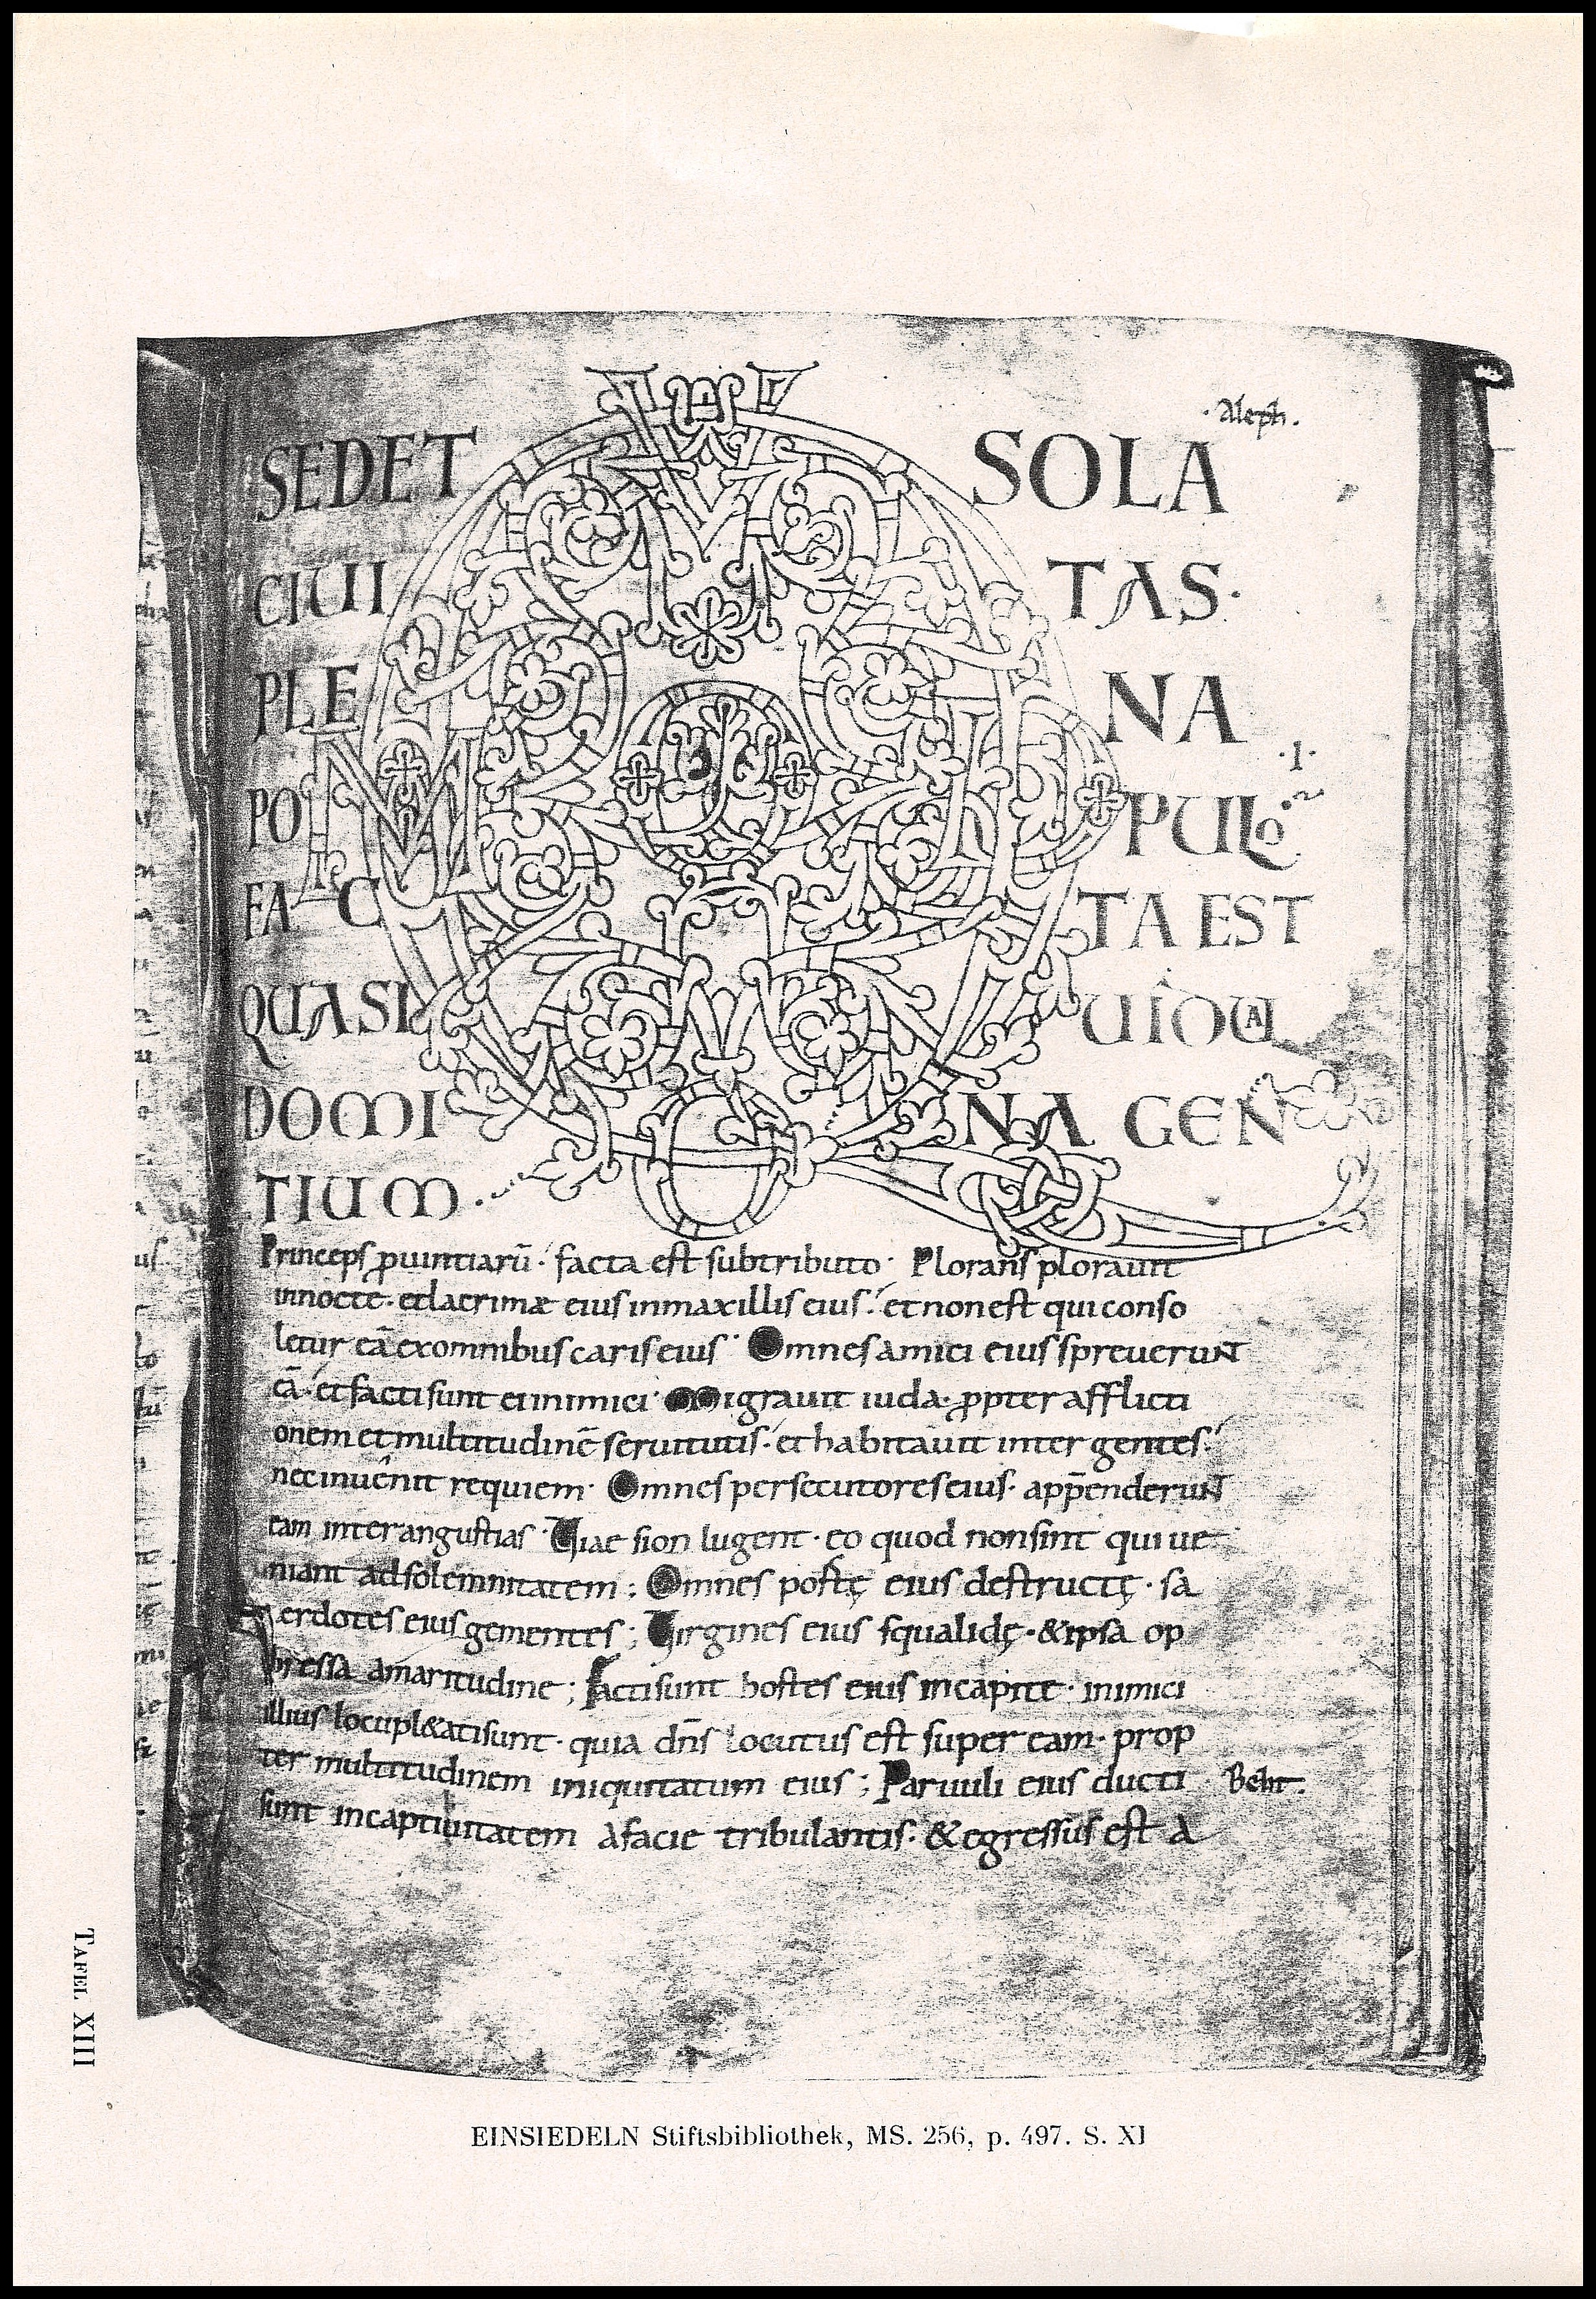 ·Aleph.
SEDET SOLA
CIUI TAS·
PLE NA
·I·
PO PULO
FAC TA EST
QUASI UIDUA
DOMI NA GEN
TIUM·
Princeps ꝓuintiarū· facta est subtributo· Plorans plorauit
innocte· etlacrimæ eius inmaxillis eius· et nonest qui conso
letur eā exomnibus caris eius· Omnes amici eius spreuerunt
eā· et facti sunt ei inimici· Migrauit iuda· ꝓpter afflicti
onem et multitudinē seruitutis· et habitauit inter gentes·
nec inuenit requiem· Omnes persecutores eius· app̄enderunt
eam inter angustias· Uiae sion lugent· eo quod nonsint qui ue
niant adsolemnitatem; Omnes portę eius destructę· sa
cerdotes eius gementes; Uirgines eius squalidę· & ipsa op
pressa amaritudine; Facti sunt hostes eius incapite· inimici
illius locupl&ati sunt· quia dn̄s locutus est super eam· prop
ter multitudinem iniquitatum eius; Paruuli eius ducti Beth·
sunt incaptiuitatem afacie tribulantis· & egressus est a
TAFEL XIII
EINSIEDELN Stiftsbibliothek, MS. 256, p. 497. S. XI